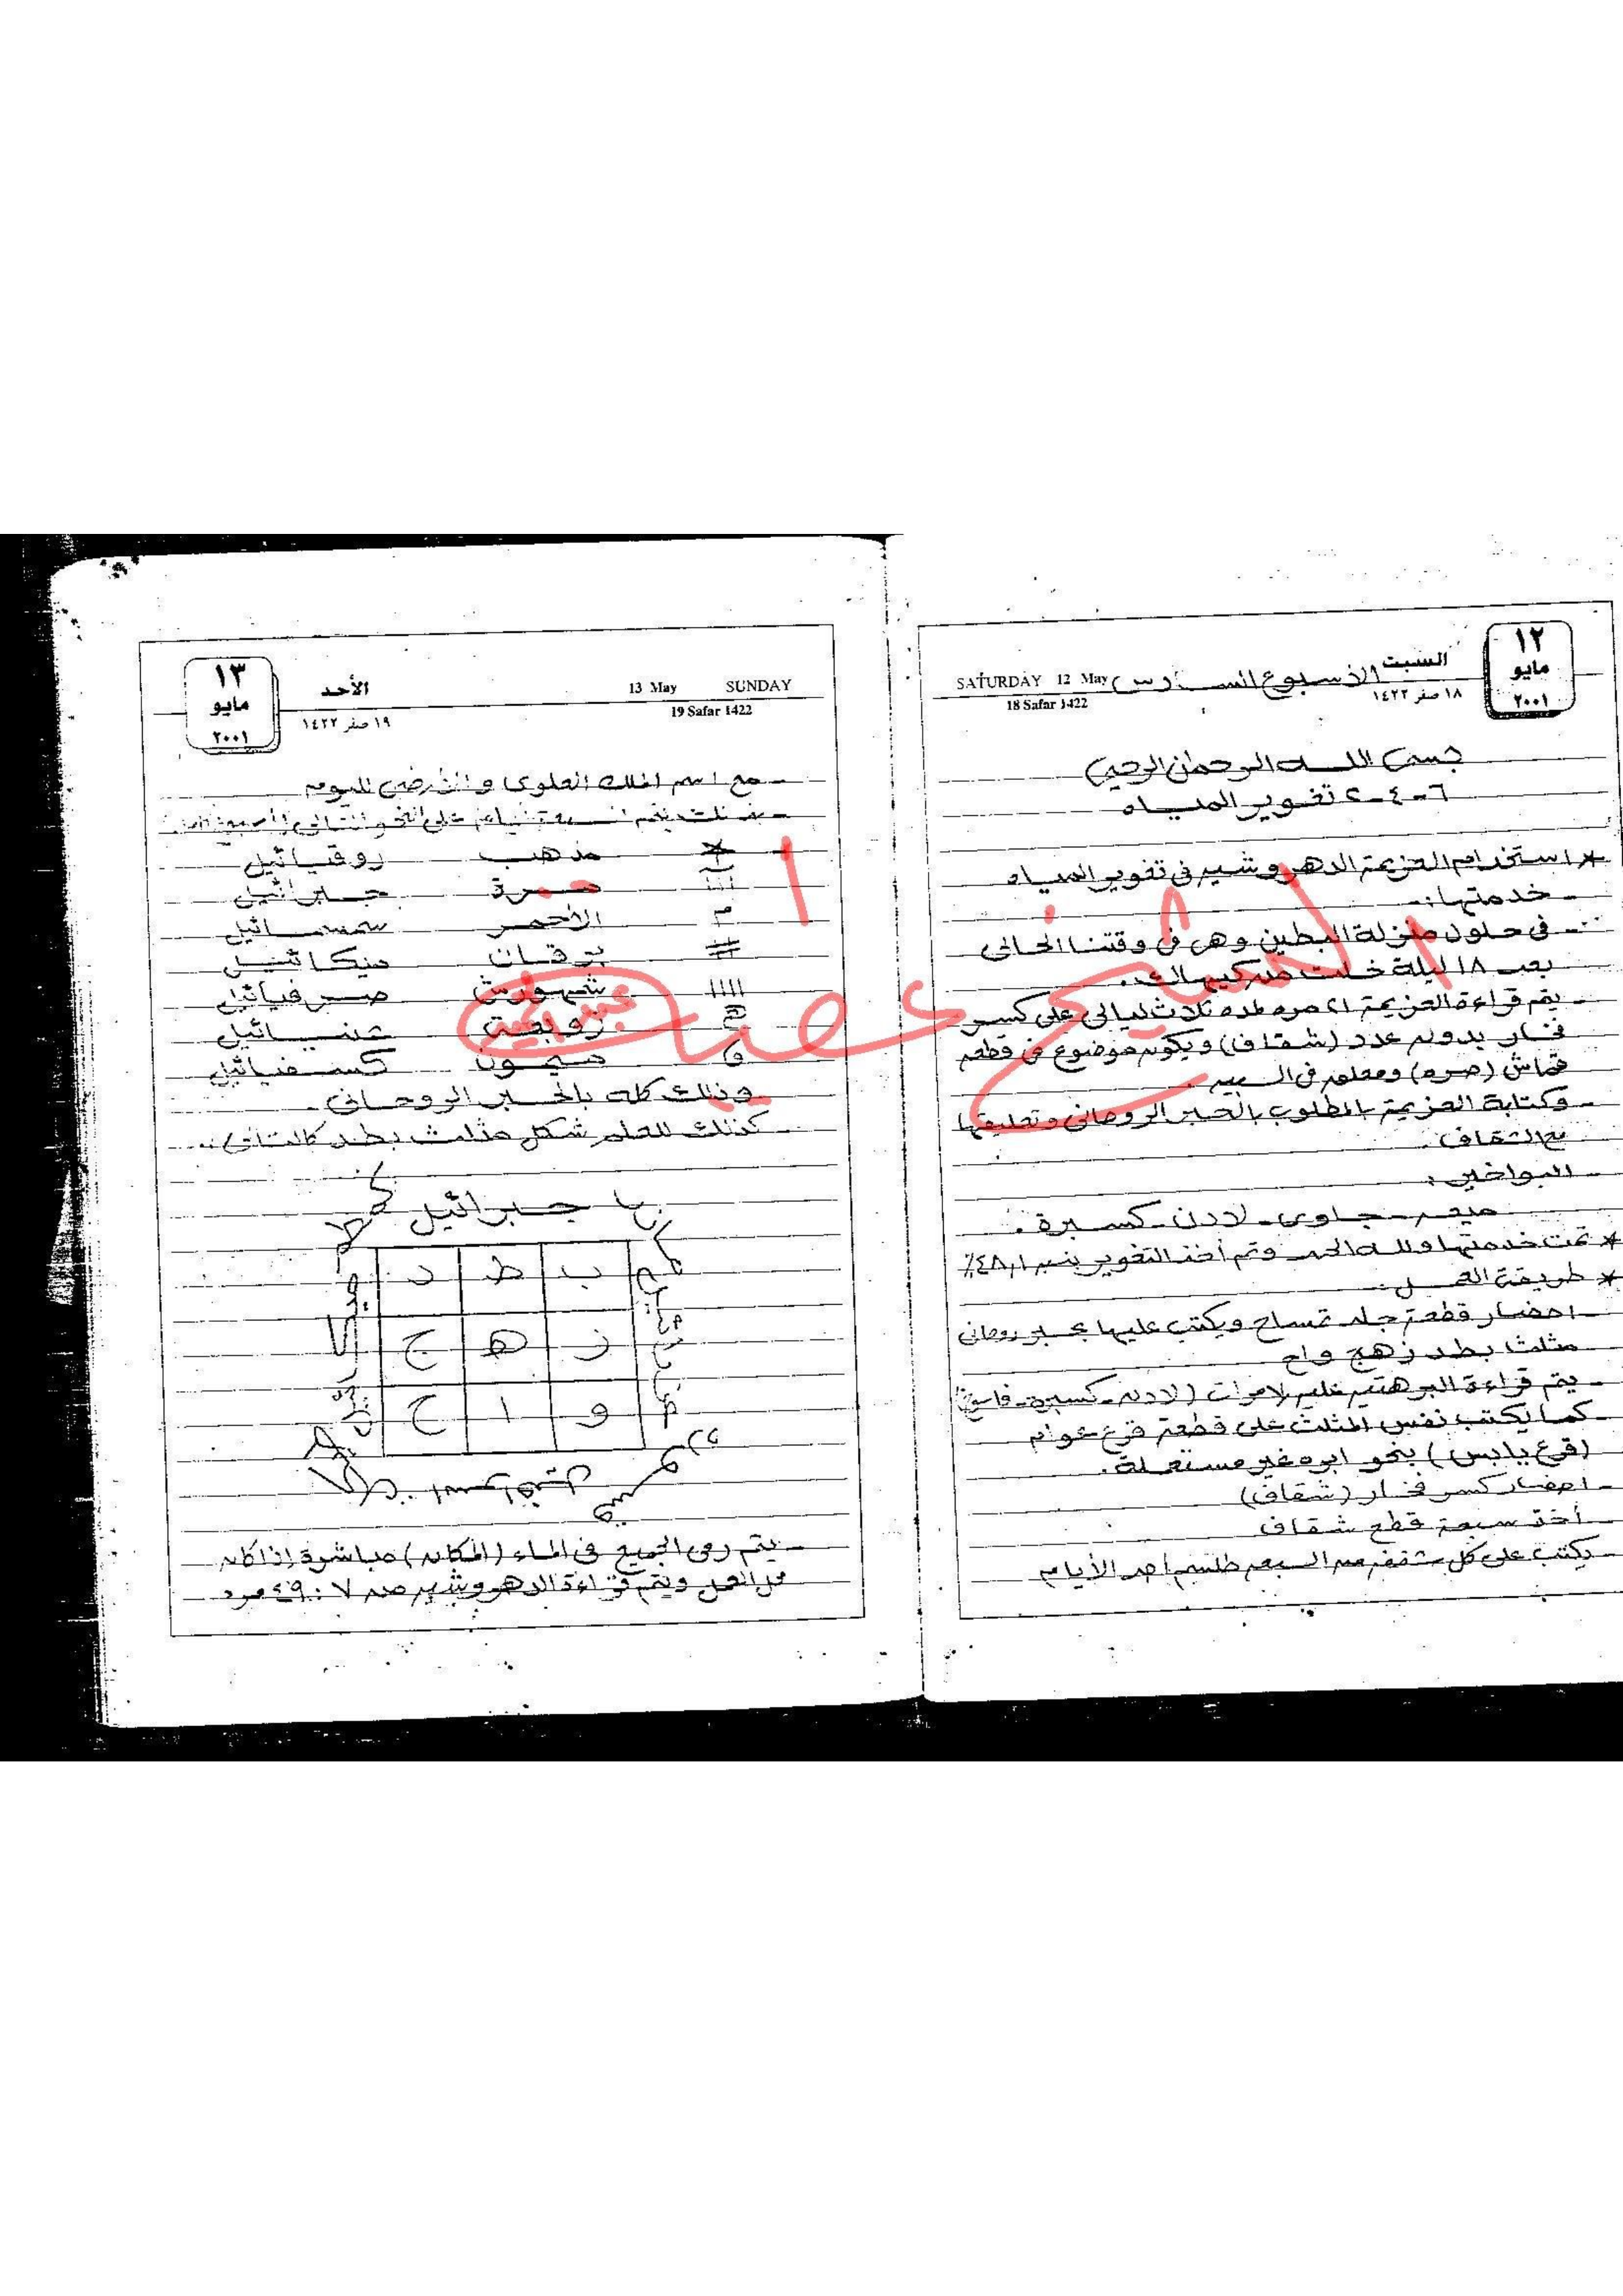 ١٢
مايو
٢٠٠١
السبت
١٨ صفر ١٤٢٢
SATURDAY 12 May
18 Safar 1422
الأسبوع السادس
بسم الله الرحمن الرحيم
٦-٤-٢ تغوير المياه
* استخدام العزيمة الدهروشيه فى تغوير المياه
- خدمتها :-
- فى حلول منزلة البطين وهى فى وقتنا الحالى
بعد ١٨ ليلة خلت من كيهاك.
- يتم قراءة العزيمة ٢١ مره لمده ثلاث ليالى على كسر
فخار بدون عدد (شقاف) ويكون موضوع فى قطعه
قماش (صره) ومعلقه فى البيت.
- وكتابة العزيمة بالمطلوب بالحبر الروحانى وتعليقها
مع الشقاف.
- البواخير:
ميعه - جاوى - لادن - كسبرة.
* تمت خدمتها ولله الحمد وتم أخذ التغوير بنسبة
* طريقة العمل:
- احضار قطعة جلد تمساح ويكتب عليها بحبر روحانى
مثلث بطد زهج واح
- يتم قراءة البرهتيه عليه مرات (لادن - كسبرة -
- كما يكتب نفس المثلث على قطعة قرع عوام
(قرع يابس) بنحو ابره غير مستعملة.
- احضار كسر فخار (شقاف)
- أخذ سبعة قطع شقاف
- يكتب على كل شقفه من السبعه طلسم احد الأيام
١٣
مايو
٢٠٠١
الأحد
١٩ صفر ١٤٢٢
13 May SUNDAY
19 Safar 1422
- مع اسم الملك العلوى والأرضى لليوم
على النحو التالى
مذهب روقيائيل
مرة جبرائيل
م الأحمر سمسمائيل
# برقان ميكائيل
شمهورش صرفيائيل
زوبعة عنيائيل
و ميمون كسفيائيل
وذلك كله بالحبر الروحانى.
- كذلك للعلم شكل مثلث بطد كالتالى:
يا جبرائيل
ب ط د
ز ه ج
و ا ح
- يتم رمى الجميع فى الماء (المكان) مباشرة إذا كان
محل العمل ويتم قراءة الدهروشيه من ٧ : ٤٩ مره
الشيخ عصا